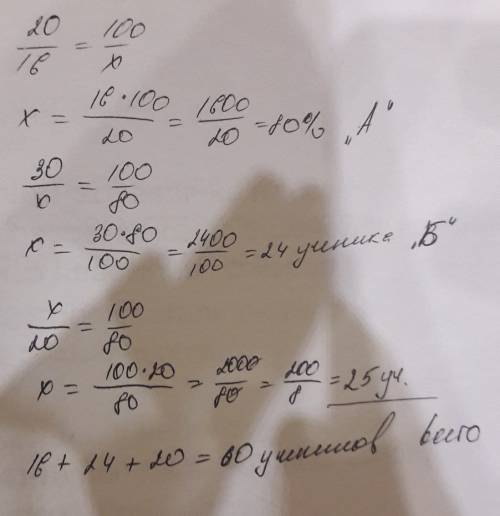 20/16 = 100/x
x = 16·100/20 = 1600/20 = 80% „А“
30/x = 100/80
x = 30·80/100 = 2400/100 = 24 ученика „Б“
x/20 = 100/80
x = 100·20/80 = 2000/80 = 200/8 = 25 уч.
16 + 24 + 20 = 60 учеников всего